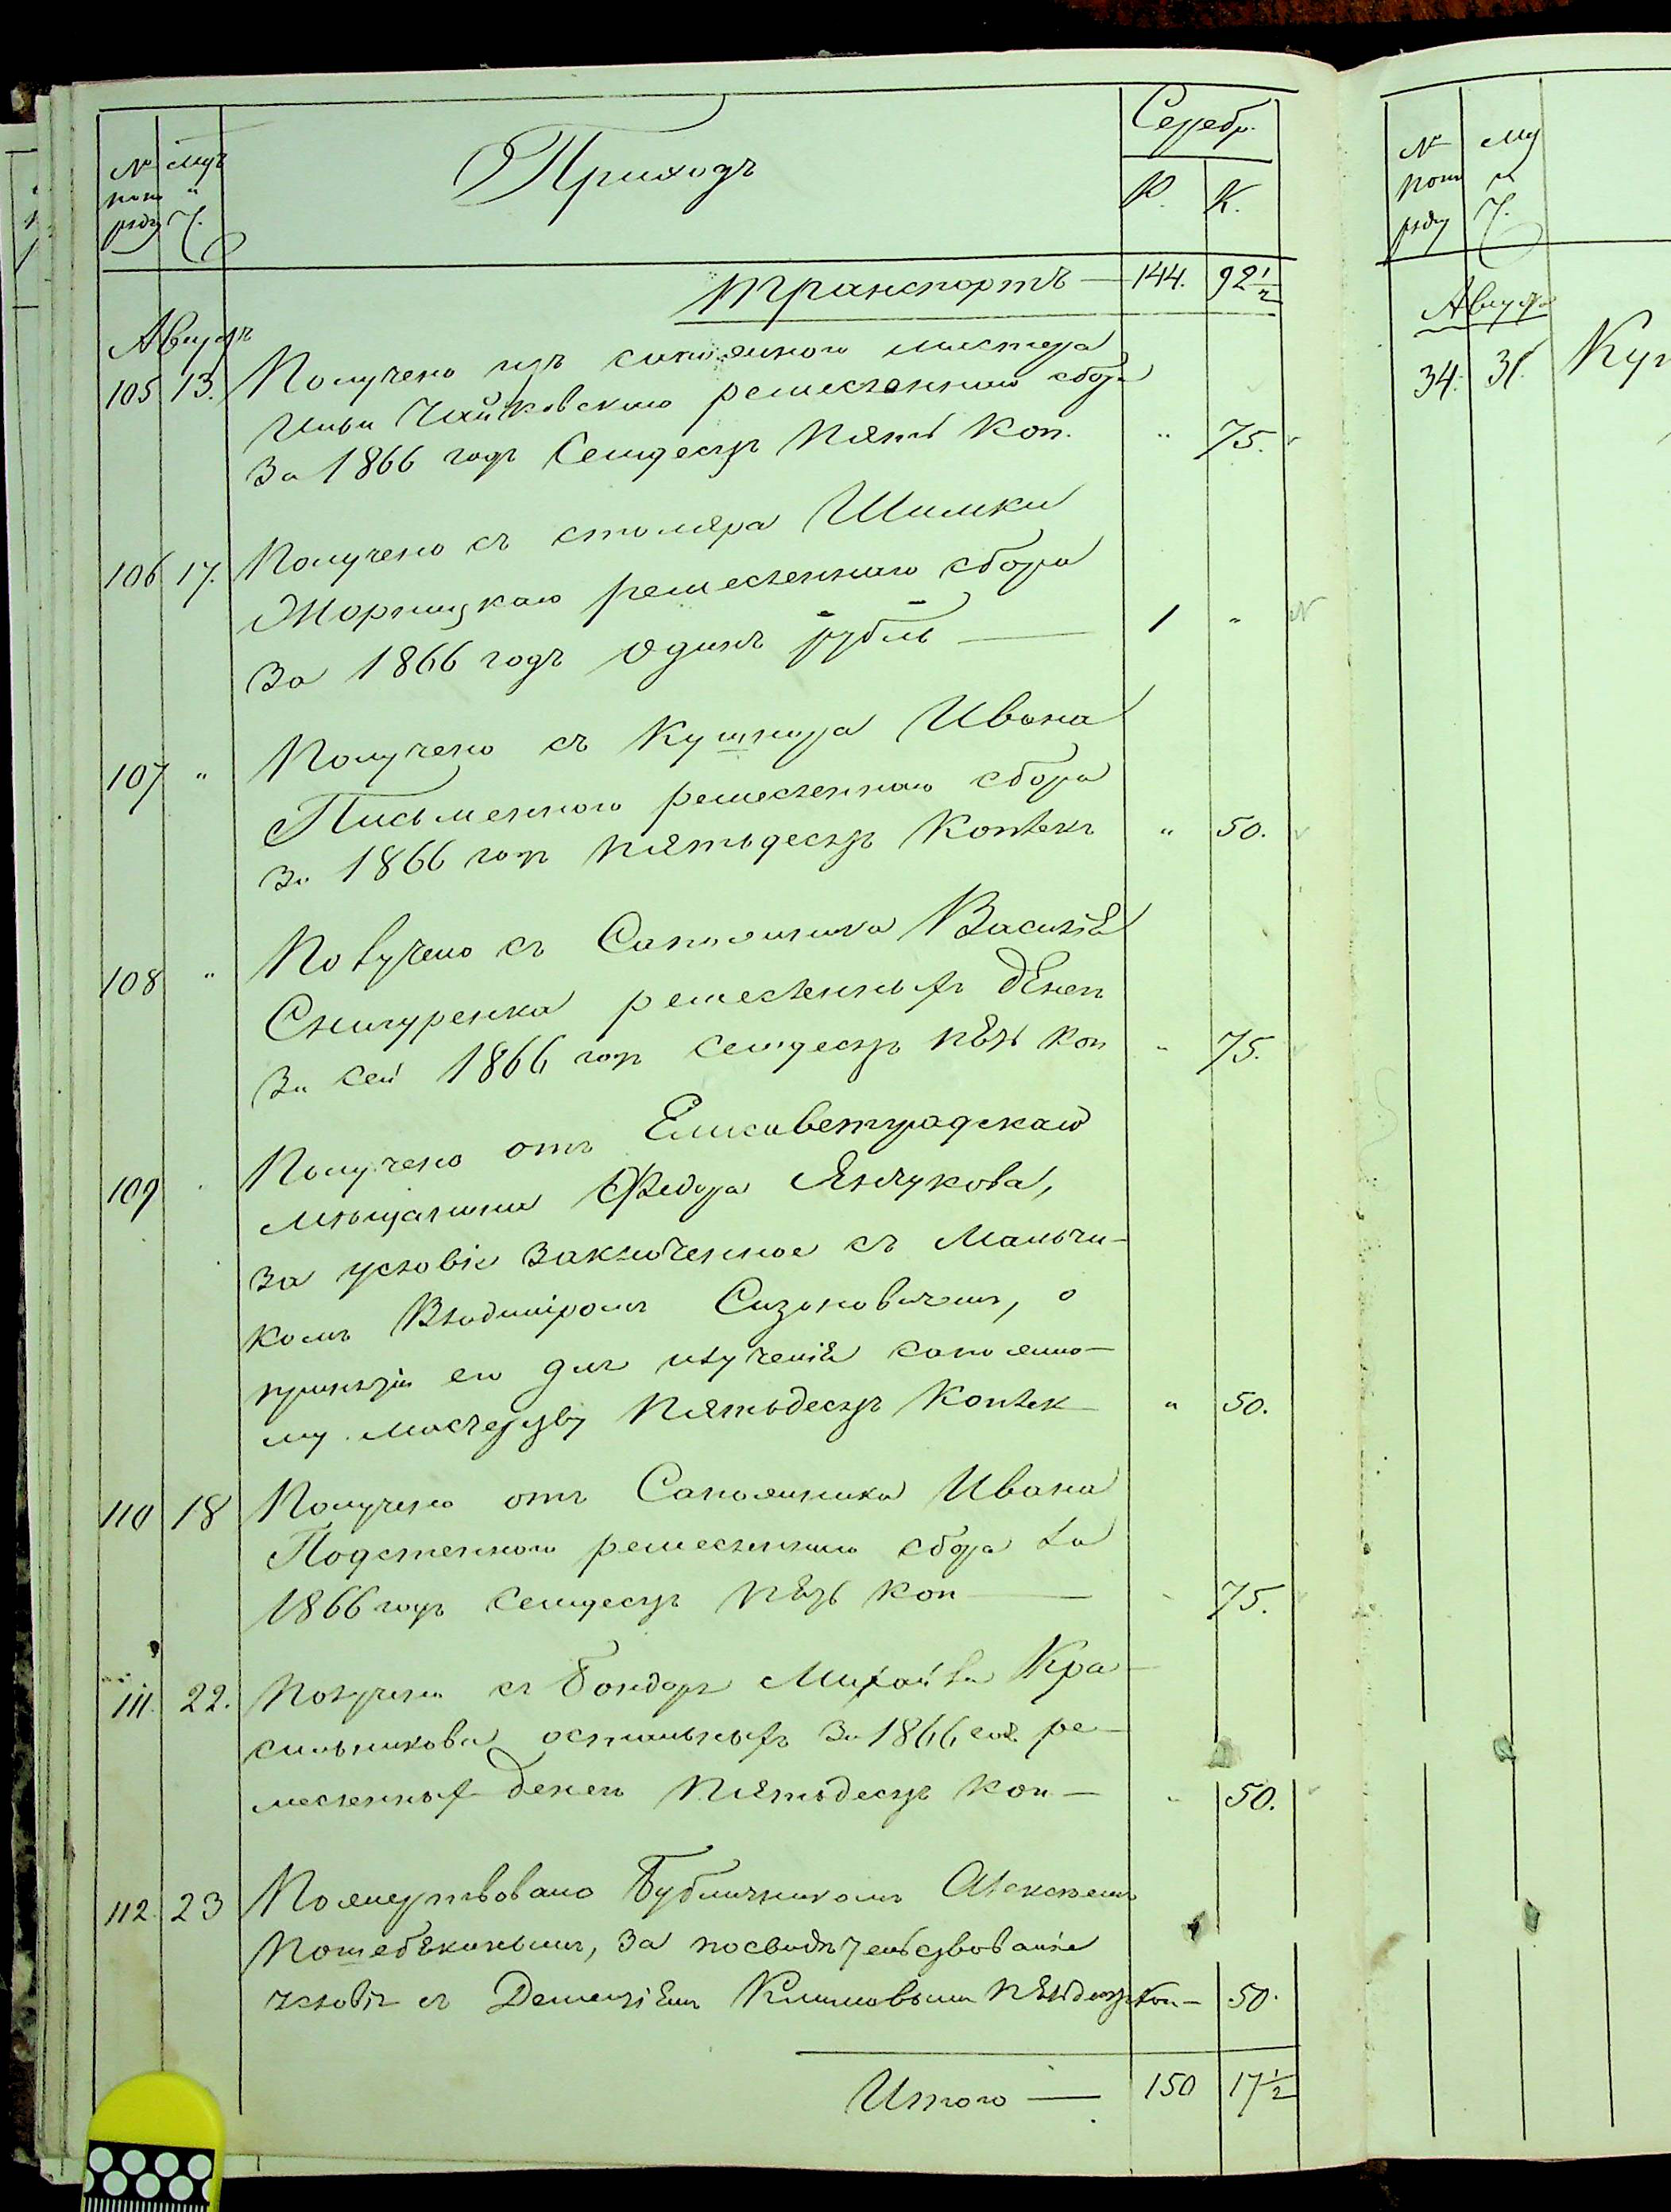 № Мцъ Приходъ Серебр.
по и
рядку Ч. Р. К.
Транспортъ — 144. 92½
Августъ
105 13. Получено изъ сапожного мастера
Ильи Чайковскаго ремесленнаго сбора
за 1866 годъ Семдесятъ Пять Коп. " 75.
106 17. Получено съ столяра Шимки
Жорницкаго ремесленнаго сбора
За 1866 годъ Одинъ рубль — 1 "
107 " Получено съ Кушнира Ивана
Письменного ремесленнаго сбора
За 1866 годъ Пятьдесятъ Копѣекъ " 50.
108 " Получено съ Сапожника Василія
Снигуренка ремесленныхъ денегъ
За сей 1866 годъ Семдесятъ пять Коп " 75.
109 Получено отъ Елисаветградскаго
мѣщанина Федора Янчукова,
за условіе заключенное съ Мальчи-
комъ Владиміромъ Сизоновичемъ, о
принятіи его для изученія сапожно-
му мастерству Пятьдесятъ Копѣек — " 50.
110 18 Получено отъ Сапожника Ивана
Подстенного ремесленнаго сбора за
1866 годъ Семдесятъ Пять Коп — " 75.
111. 22. Получено съ Бондаря Михайла Кра-
сильникова остальныхъ За 1866 год. ре-
месленных денегъ Пятьдесятъ Коп — " 50.
112. 23 Пожертвовано Бубличникомъ Алексѣемъ
Пошебякинымъ, за посвидѣтельствованіе
условія съ Дементіемъ Климовымъ Пятьдесятъ Коп — 50.
Итого — 150 17½
№ Мц
по и
рядку Ч.
Августъ
34. 31. Куп